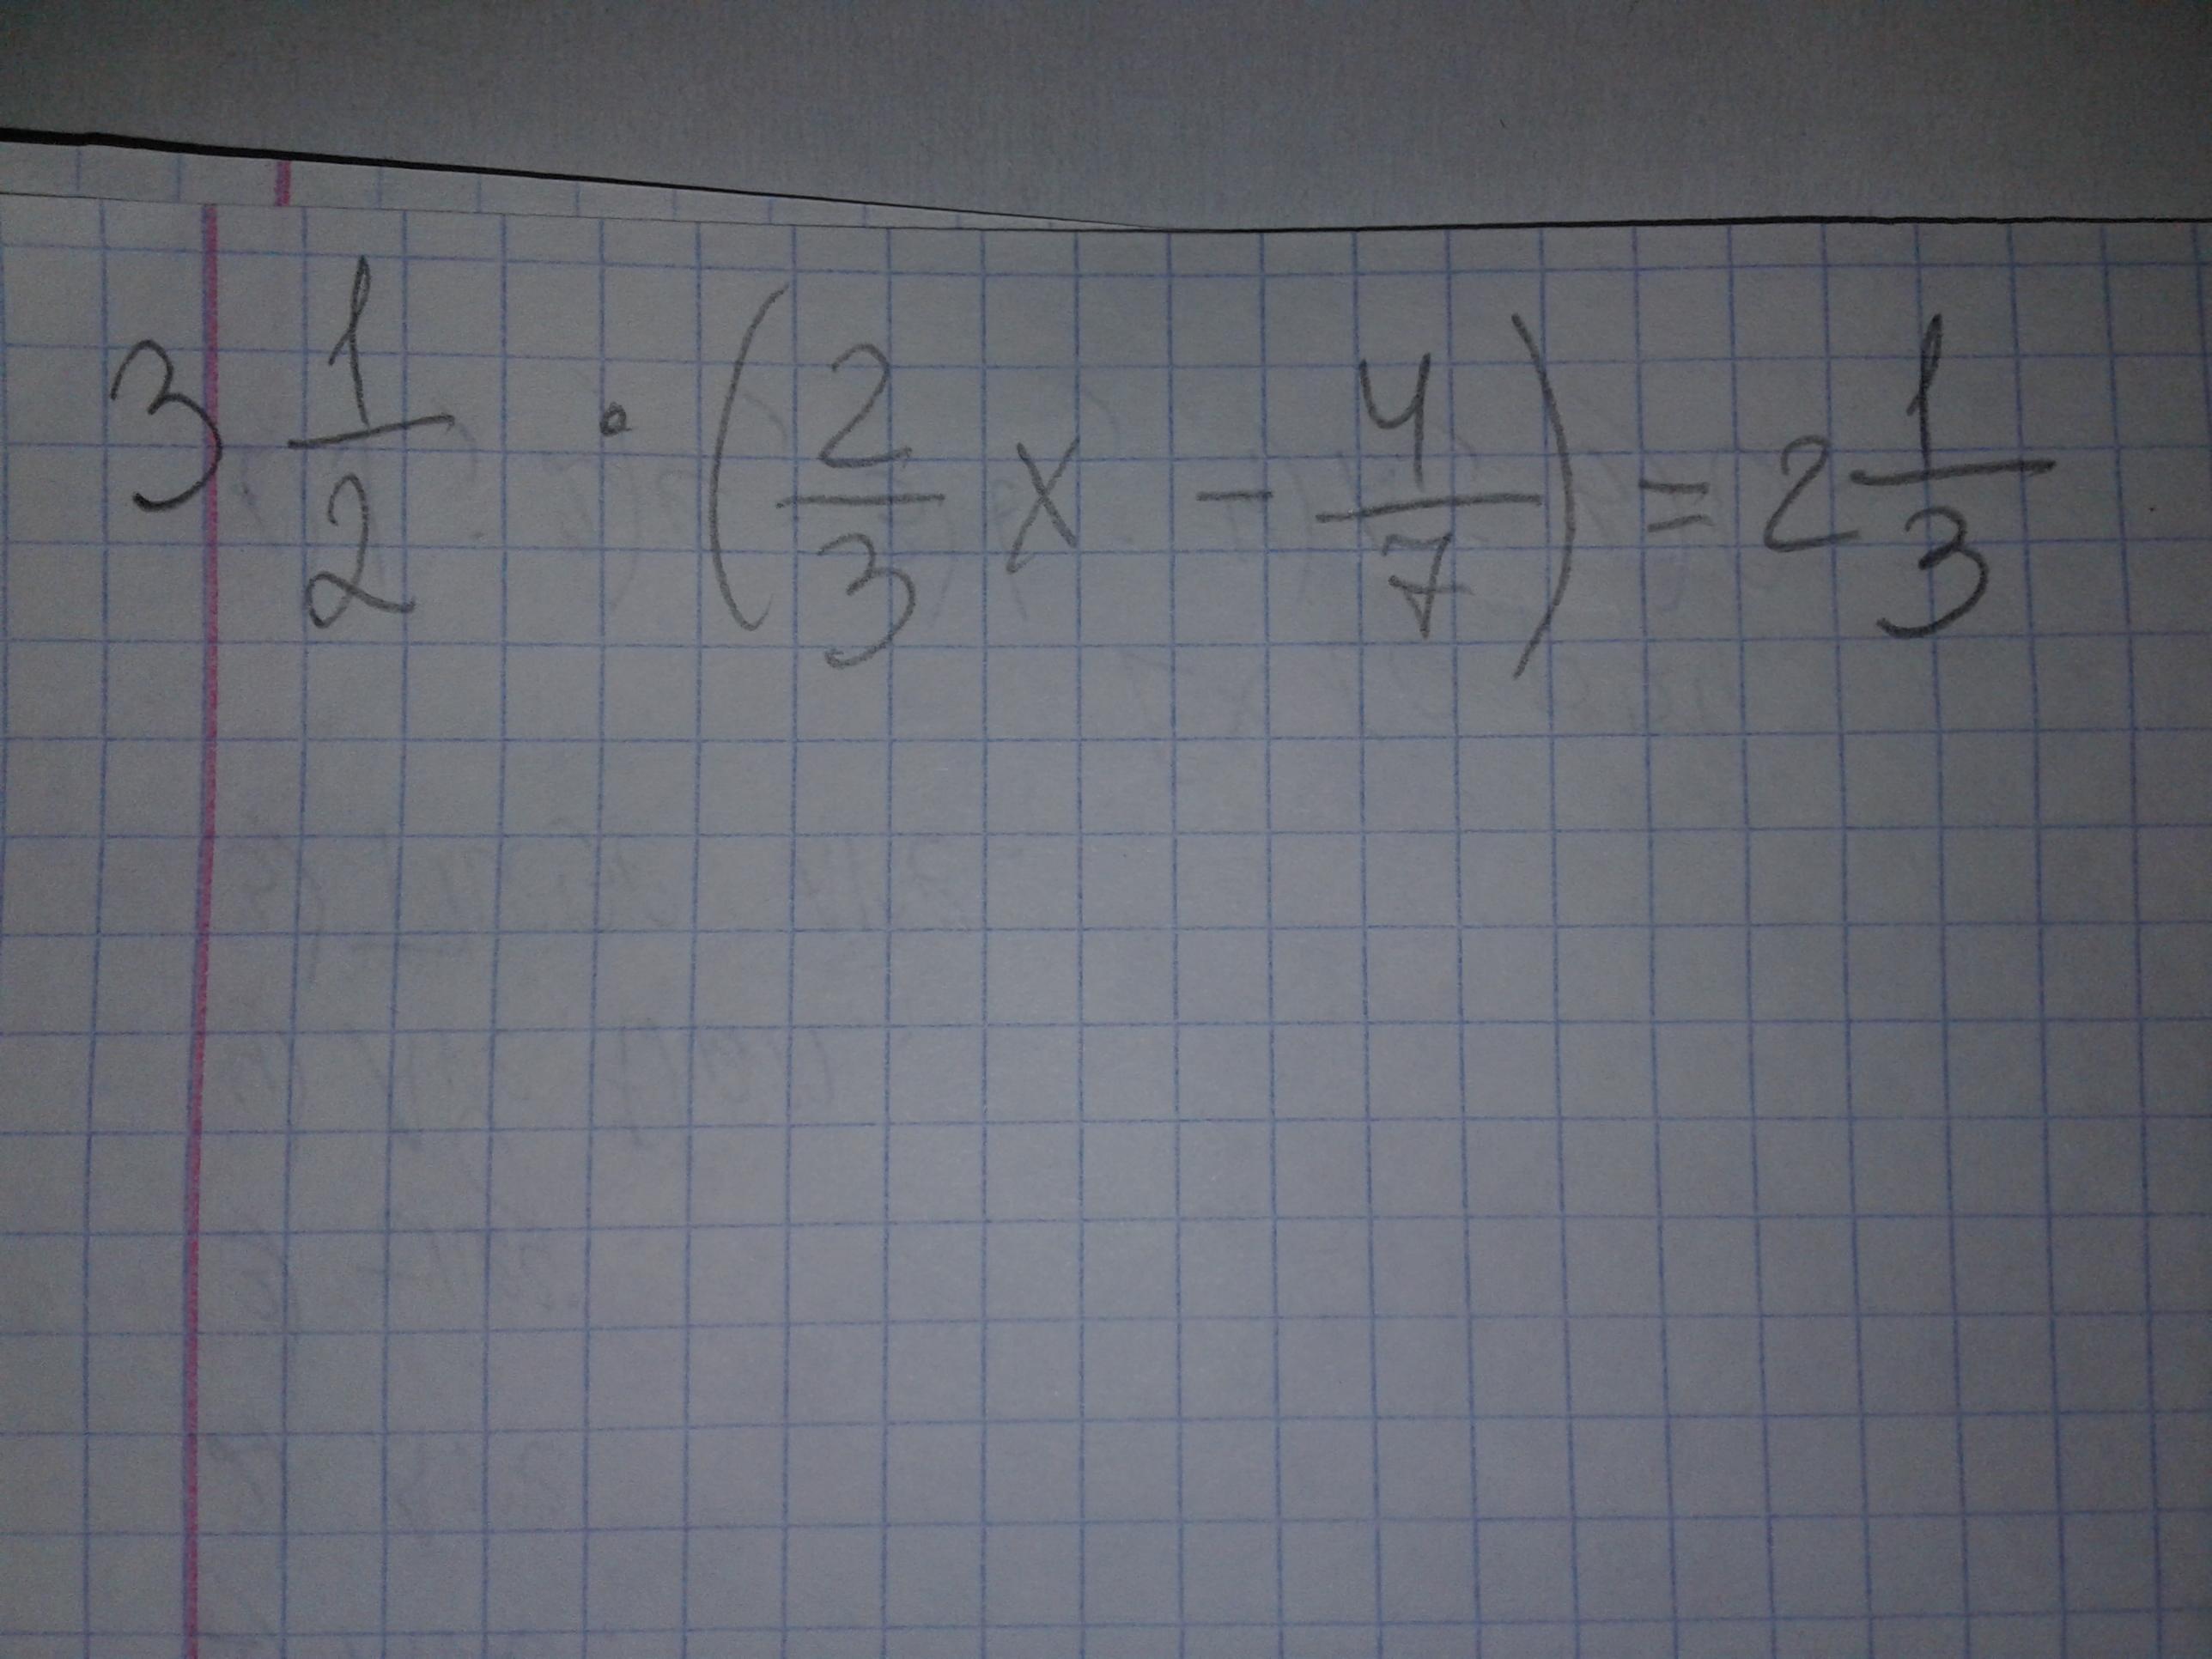 3 1/2 · (2/3 x - 4/7) = 2 1/3